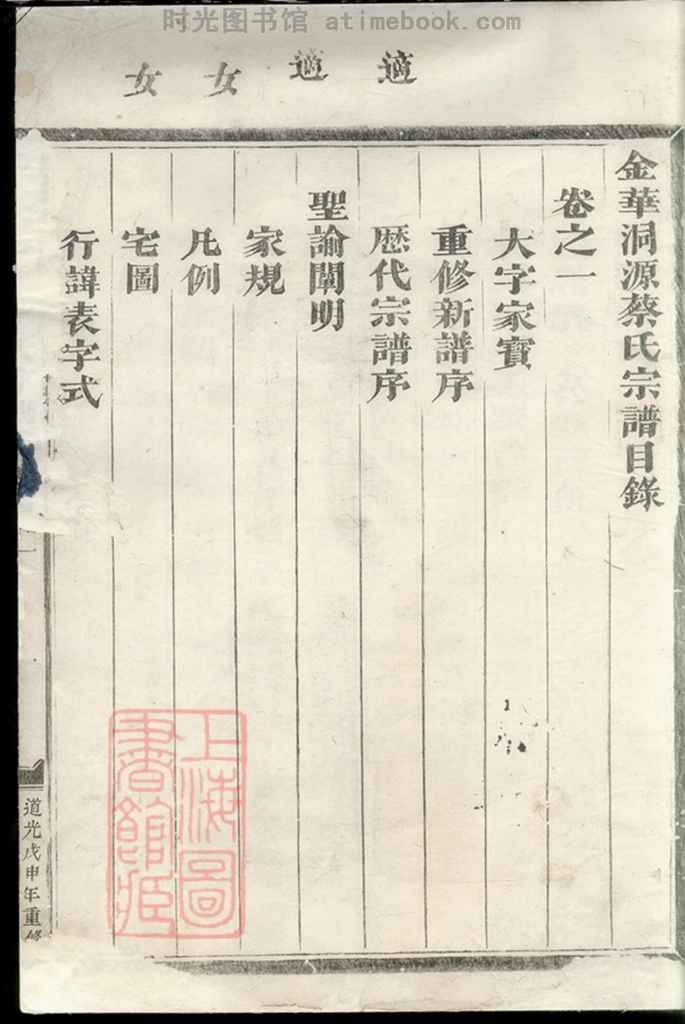 时光图书馆 atimebook.com
適 適 女 女
金華洞源蔡氏宗譜目錄
卷之一
大字家寳
重修新譜序
歷代宗譜序
聖諭闡明
家規
凡例
宅圖
行諱表字式
道光戊申年重修
上海圖
書館藏